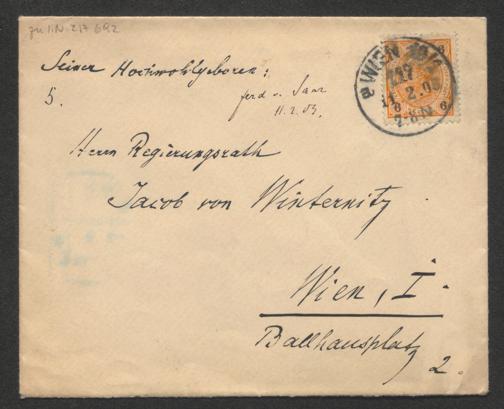 zu I.N. 217 692
WIEN 19/1
11. 2. 05
6
6
Seiner Hochwohlgeboren:
5.
ferd v. Saar
11.2.05.
Herrn Regierungsrath
Jacob von Winternitz
Wien, I.
Ballhausplatz
2.